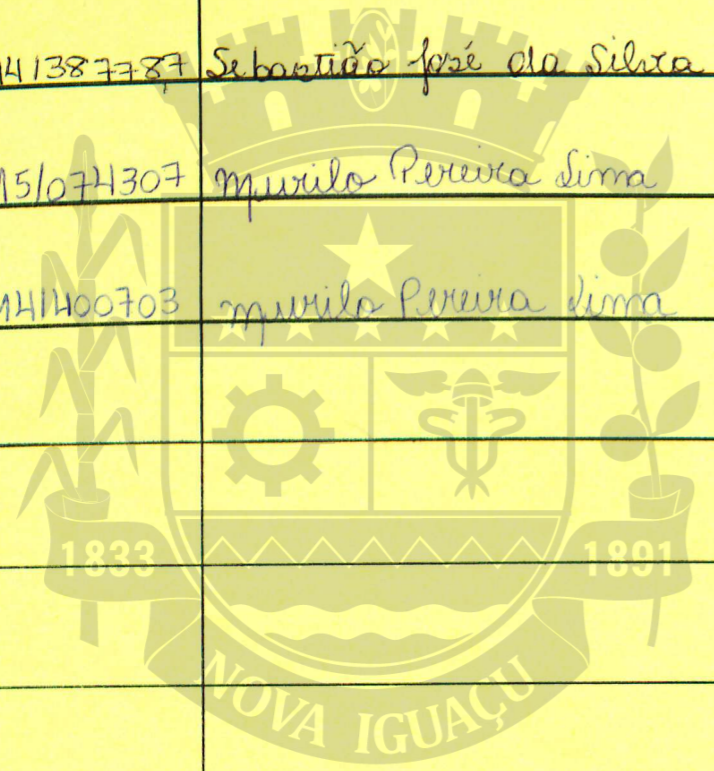 141387787 Sebastião José da Silva
15/074307 Murilo Pereira Lima
141400703 Murilo Pereira Lima
1833 1891
NOVA IGUAÇU